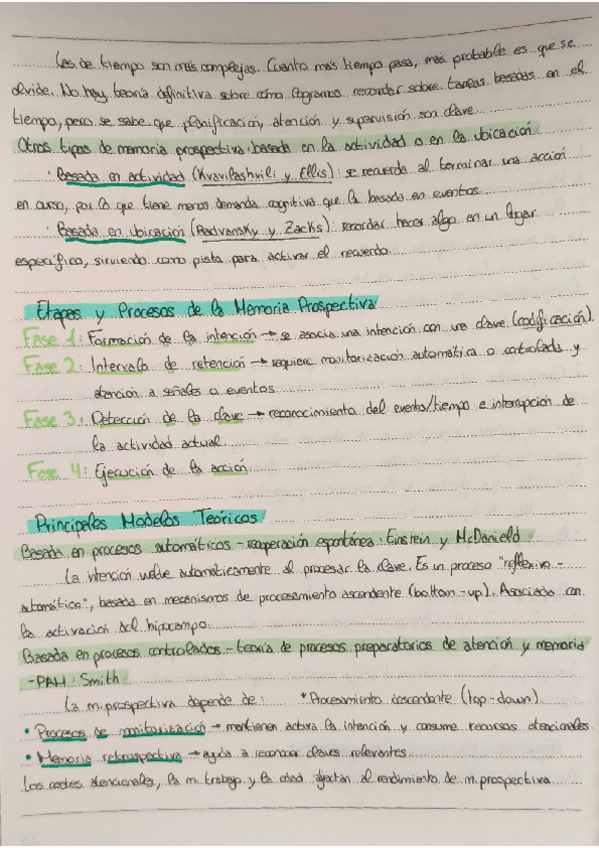 Las de tiempo son más complejas. Cuanto más tiempo pasa, más probable es que se
olvide. No hay teoría definitiva sobre cómo logramos recordar sobre tareas basadas en el
tiempo, pero se sabe que planificación, atención y supervisión son clave.
Otros tipos de memoria prospectiva: basada en la actividad o en la ubicación
· Basada en actividad (Kvavilashvili y Ellis): se recuerda al terminar una acción
en curso, por lo que tiene menos demanda cognitiva que la basada en eventos.
· Basada en ubicación (Radvansky y Zacks): recordar hacer algo en un lugar
específico, sirviendo como pista para activar el recuerdo.
Etapas y Procesos de la Memoria Prospectiva
Fase 1: Formación de la intención → se asocia una intención con una clave (codificación).
Fase 2: Intervalo de retención → requiere monitarización automática o controlada y
atención a señales o eventos
Fase 3: Detección de la clave → reconocimiento del evento/tiempo e interrupción de
la actividad actual.
Fase 4: Ejecución de la acción
Principales Modelos Teóricos
Basada en procesos automáticos - recuperación espontánea: Einstein y McDanield
La intención vuelve automáticamente al procesar la clave. Es un proceso "reflexivo -
automático", basada en mecanismos de procesamiento ascendente (bottom-up). Asociada con
la activación del hipocampo.
Basada en procesos controlados - teoría de procesos preparatorios de atención y memoria
- PAM: Smith
La m. prospectiva depende de: *Procesamiento descendente (top-down)
• Procesos de monitorización → mantienen activa la intención y consume recursos atencionales
• Memoria retrospectiva → ayuda a reconocer claves relevantes
Los costes atencionales, la m. trabajo y la edad afectan al rendimiento de m. prospectiva